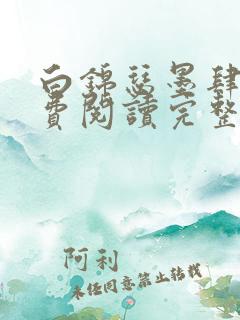 白錦瑟墨肆
費閱讀完整
阿利
未经同意禁止转载